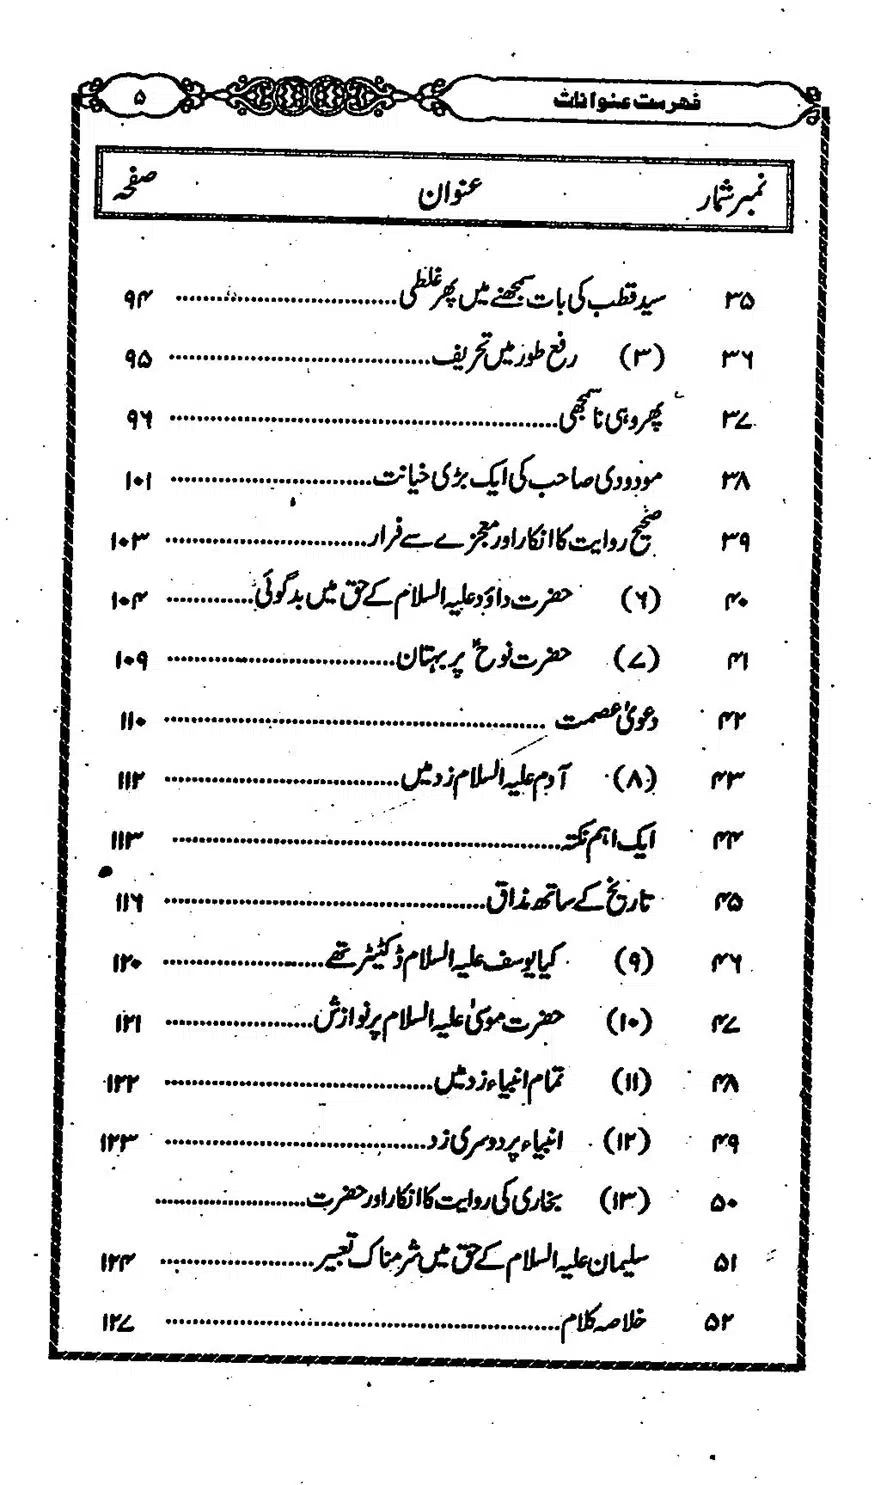 فہرست عنوانات ۵
نمبر شمار عنوان صفحہ
۳۵ سید قطب کی بات سمجھنے میں پھر غلطی ۹۴
۳۶ (۳) رفع طور میں تحریف ۹۵
۳۷ پھر وہی نا سمجھی ۹۶
۳۸ مودودی صاحب کی ایک بڑی خیانت ۱۰۱
۳۹ صحیح روایت کا انکار اور معجزے سے فرار ۱۰۳
۴۰ (۶) حضرت داؤد علیہ السلام کے حق میں بدگوئی ۱۰۴
۴۱ (۷) حضرت نوحؑ پر بہتان ۱۰۹
۴۲ دعویٰ عصمت ۱۱۰
۴۳ (۸) آدم علیہ السلام زد میں ۱۱۲
۴۴ ایک اہم نکتہ ۱۱۳
۴۵ تاریخ کے ساتھ مذاق ۱۱۶
۴۶ (۹) کیا یوسف علیہ السلام ڈکٹیٹر تھے ۱۲۰
۴۷ (۱۰) حضرت موسیٰ علیہ السلام پر نوازش ۱۲۱
۴۸ (۱۱) تمام انبیاء زد میں ۱۲۲
۴۹ (۱۲) انبیاء پر دوسری زد ۱۲۳
۵۰ (۱۳) بخاری کی روایت کا انکار اور حضرت
۵۱ سلیمان علیہ السلام کے حق میں شرمناک تعبیر ۱۲۴
۵۲ خلاصہ کلام ۱۲۷